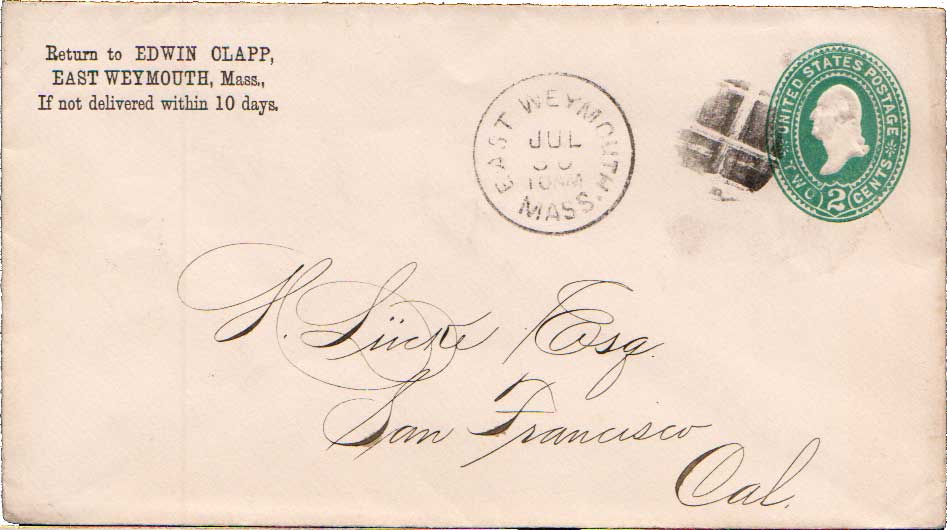 Return to EDWIN CLAPP,
EAST WEYMOUTH, Mass.,
If not delivered within 10 days.
EAST WEYMOUTH
JUL
MASS.
UNITED STATES POSTAGE
TWO 2 CENTS
H. Lücke Esq.
San Francisco
Cal.